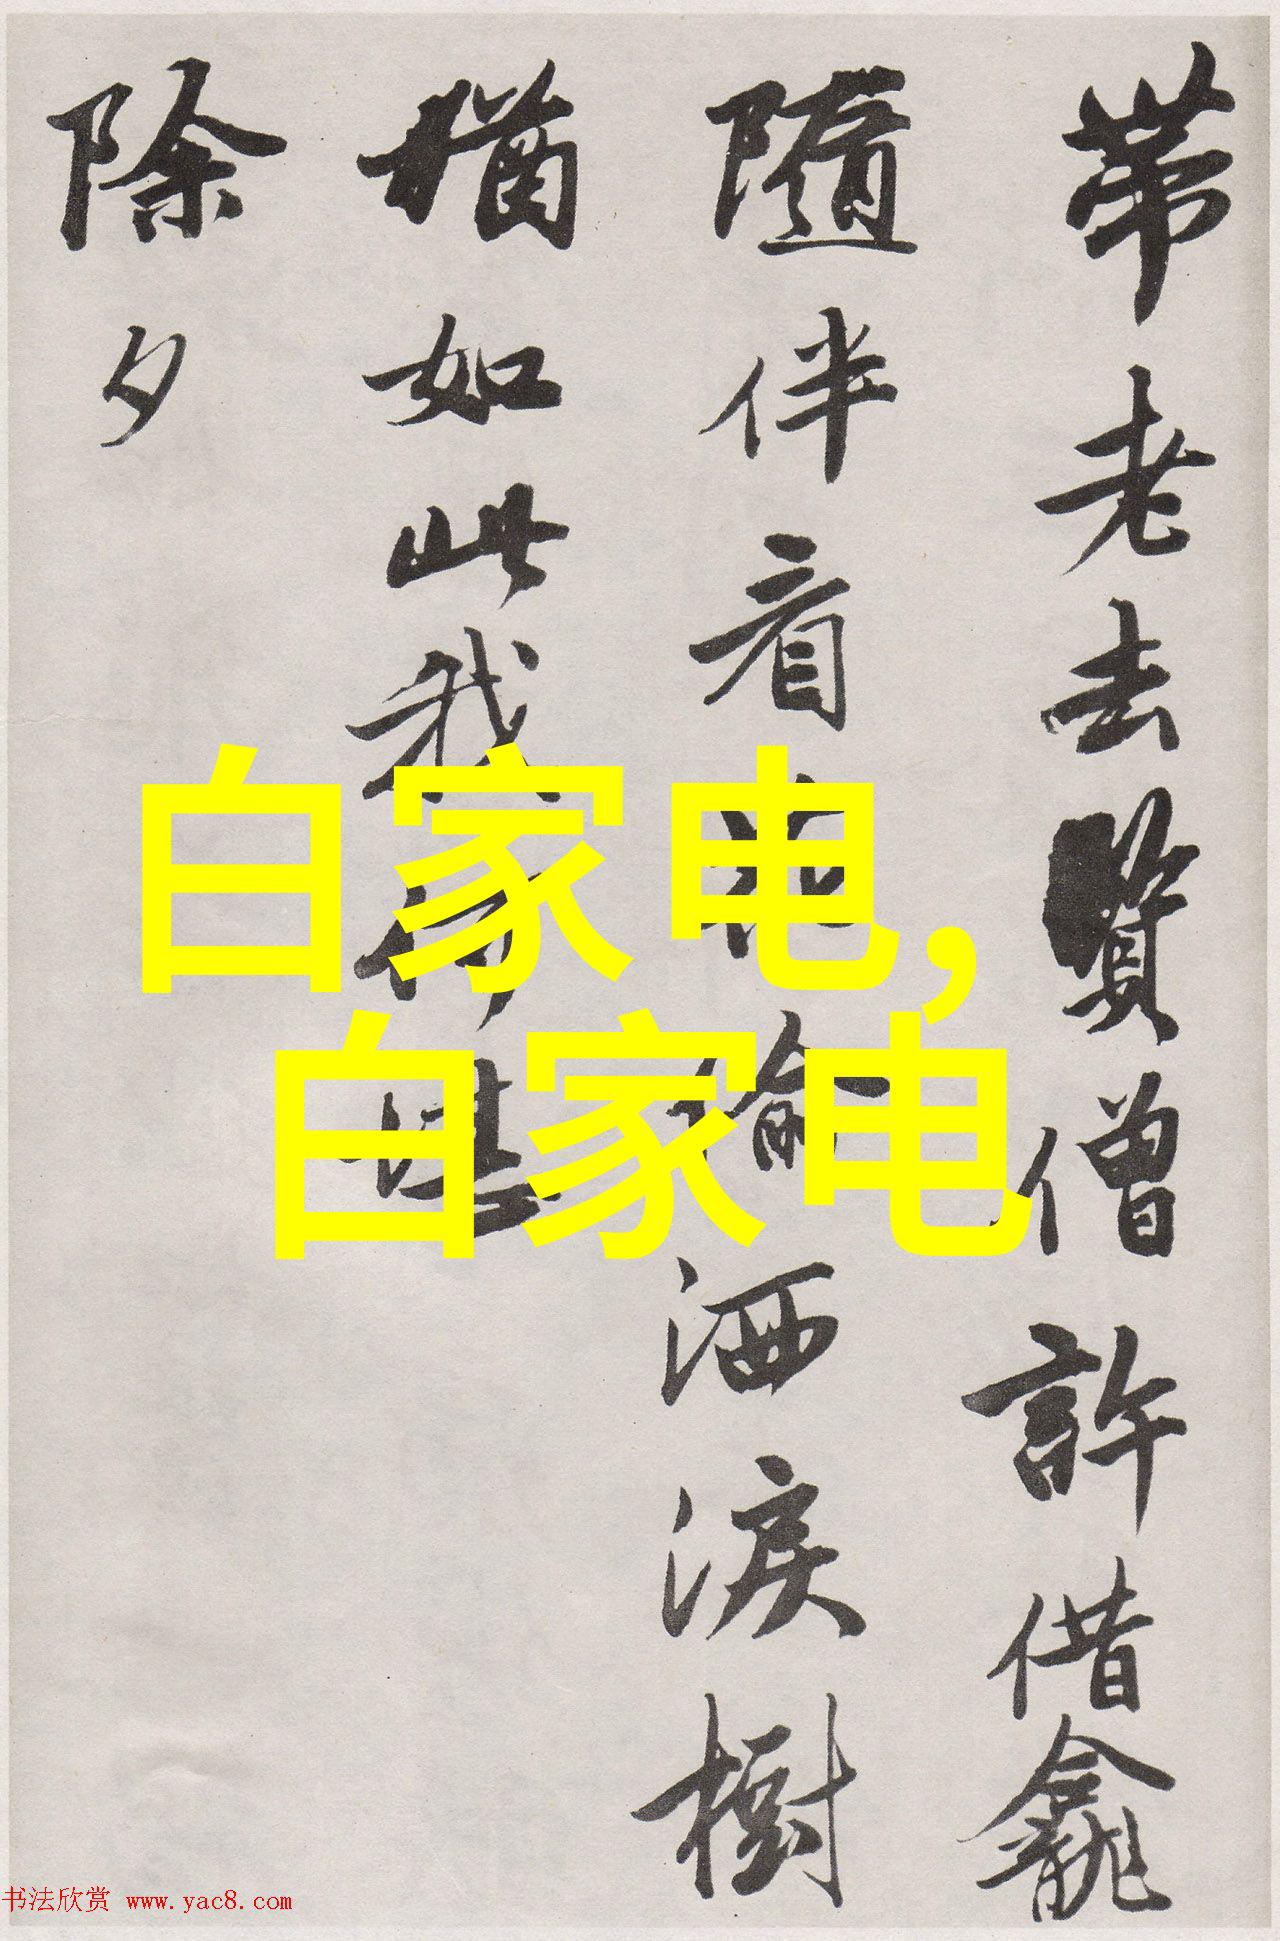 带老去贤僧許借龕
隨伴看花偷洒淚樹
猶如此我何堪
除夕
白家电,
白家电
书法欣赏 www.yac8.com